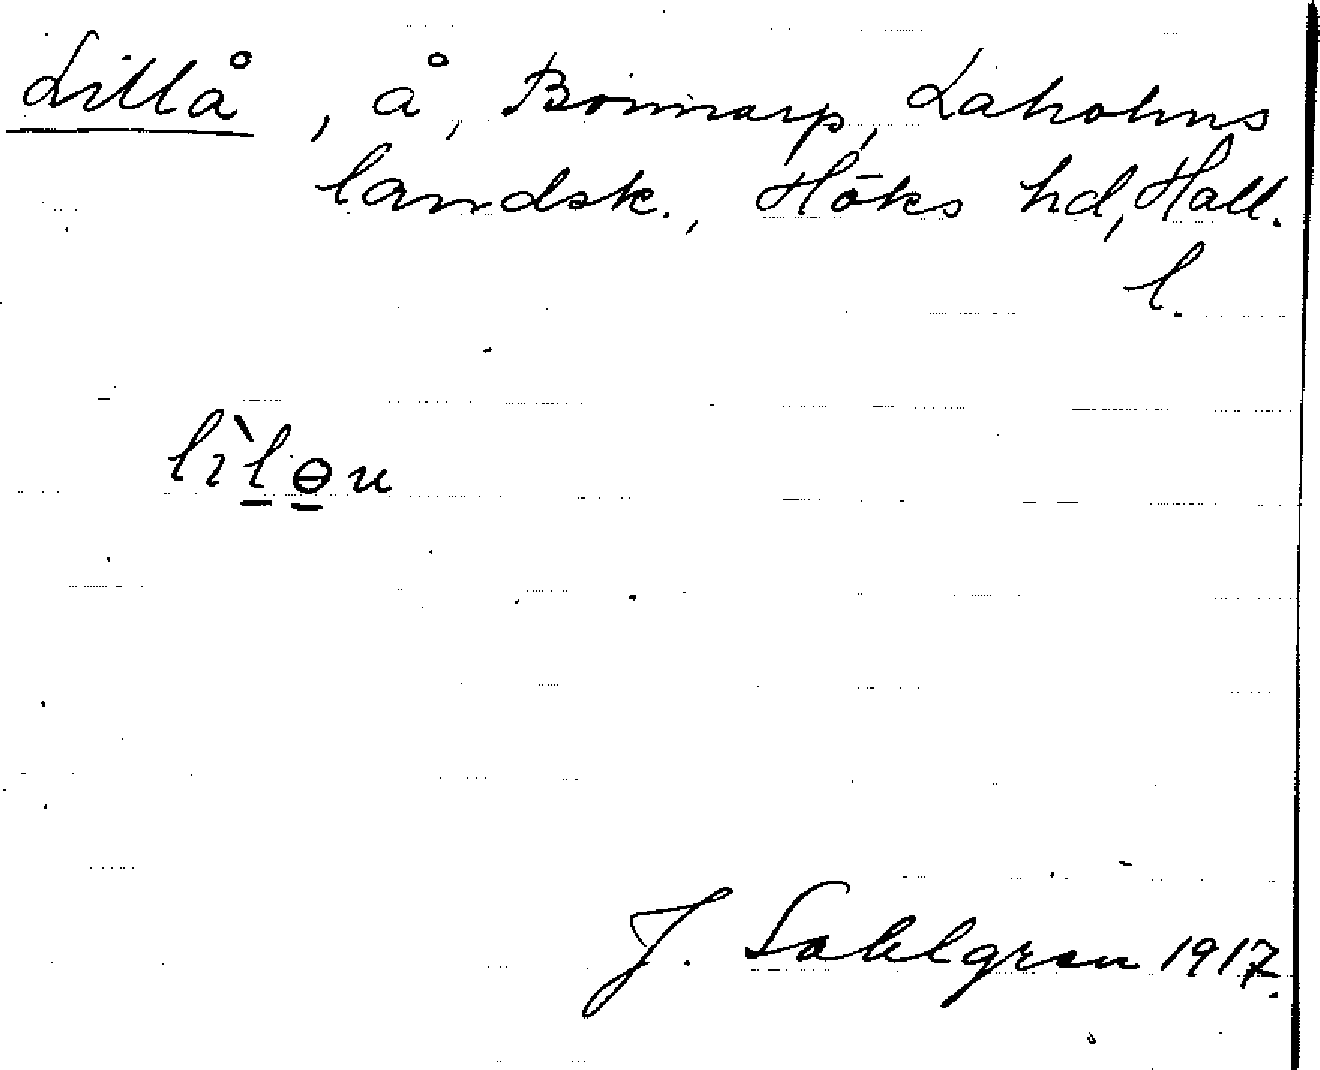 Lillå, å, Bönnarp, Laholms
landsk., Höks hd, Hall.
l.
lìlɵu
J. Sahlgren 1917.